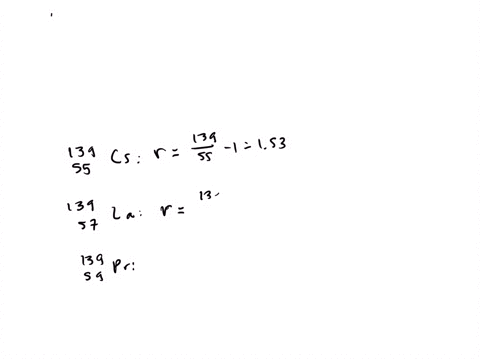 139
55 Cs: r = 139/55 - 1 = 1.53
139
57 La: r = 13
139
59 Pr: